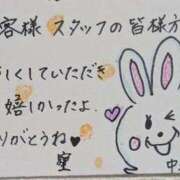 客様 スタッフの皆様方
しくしていただき
嬉しかったよ
りがとうね
中